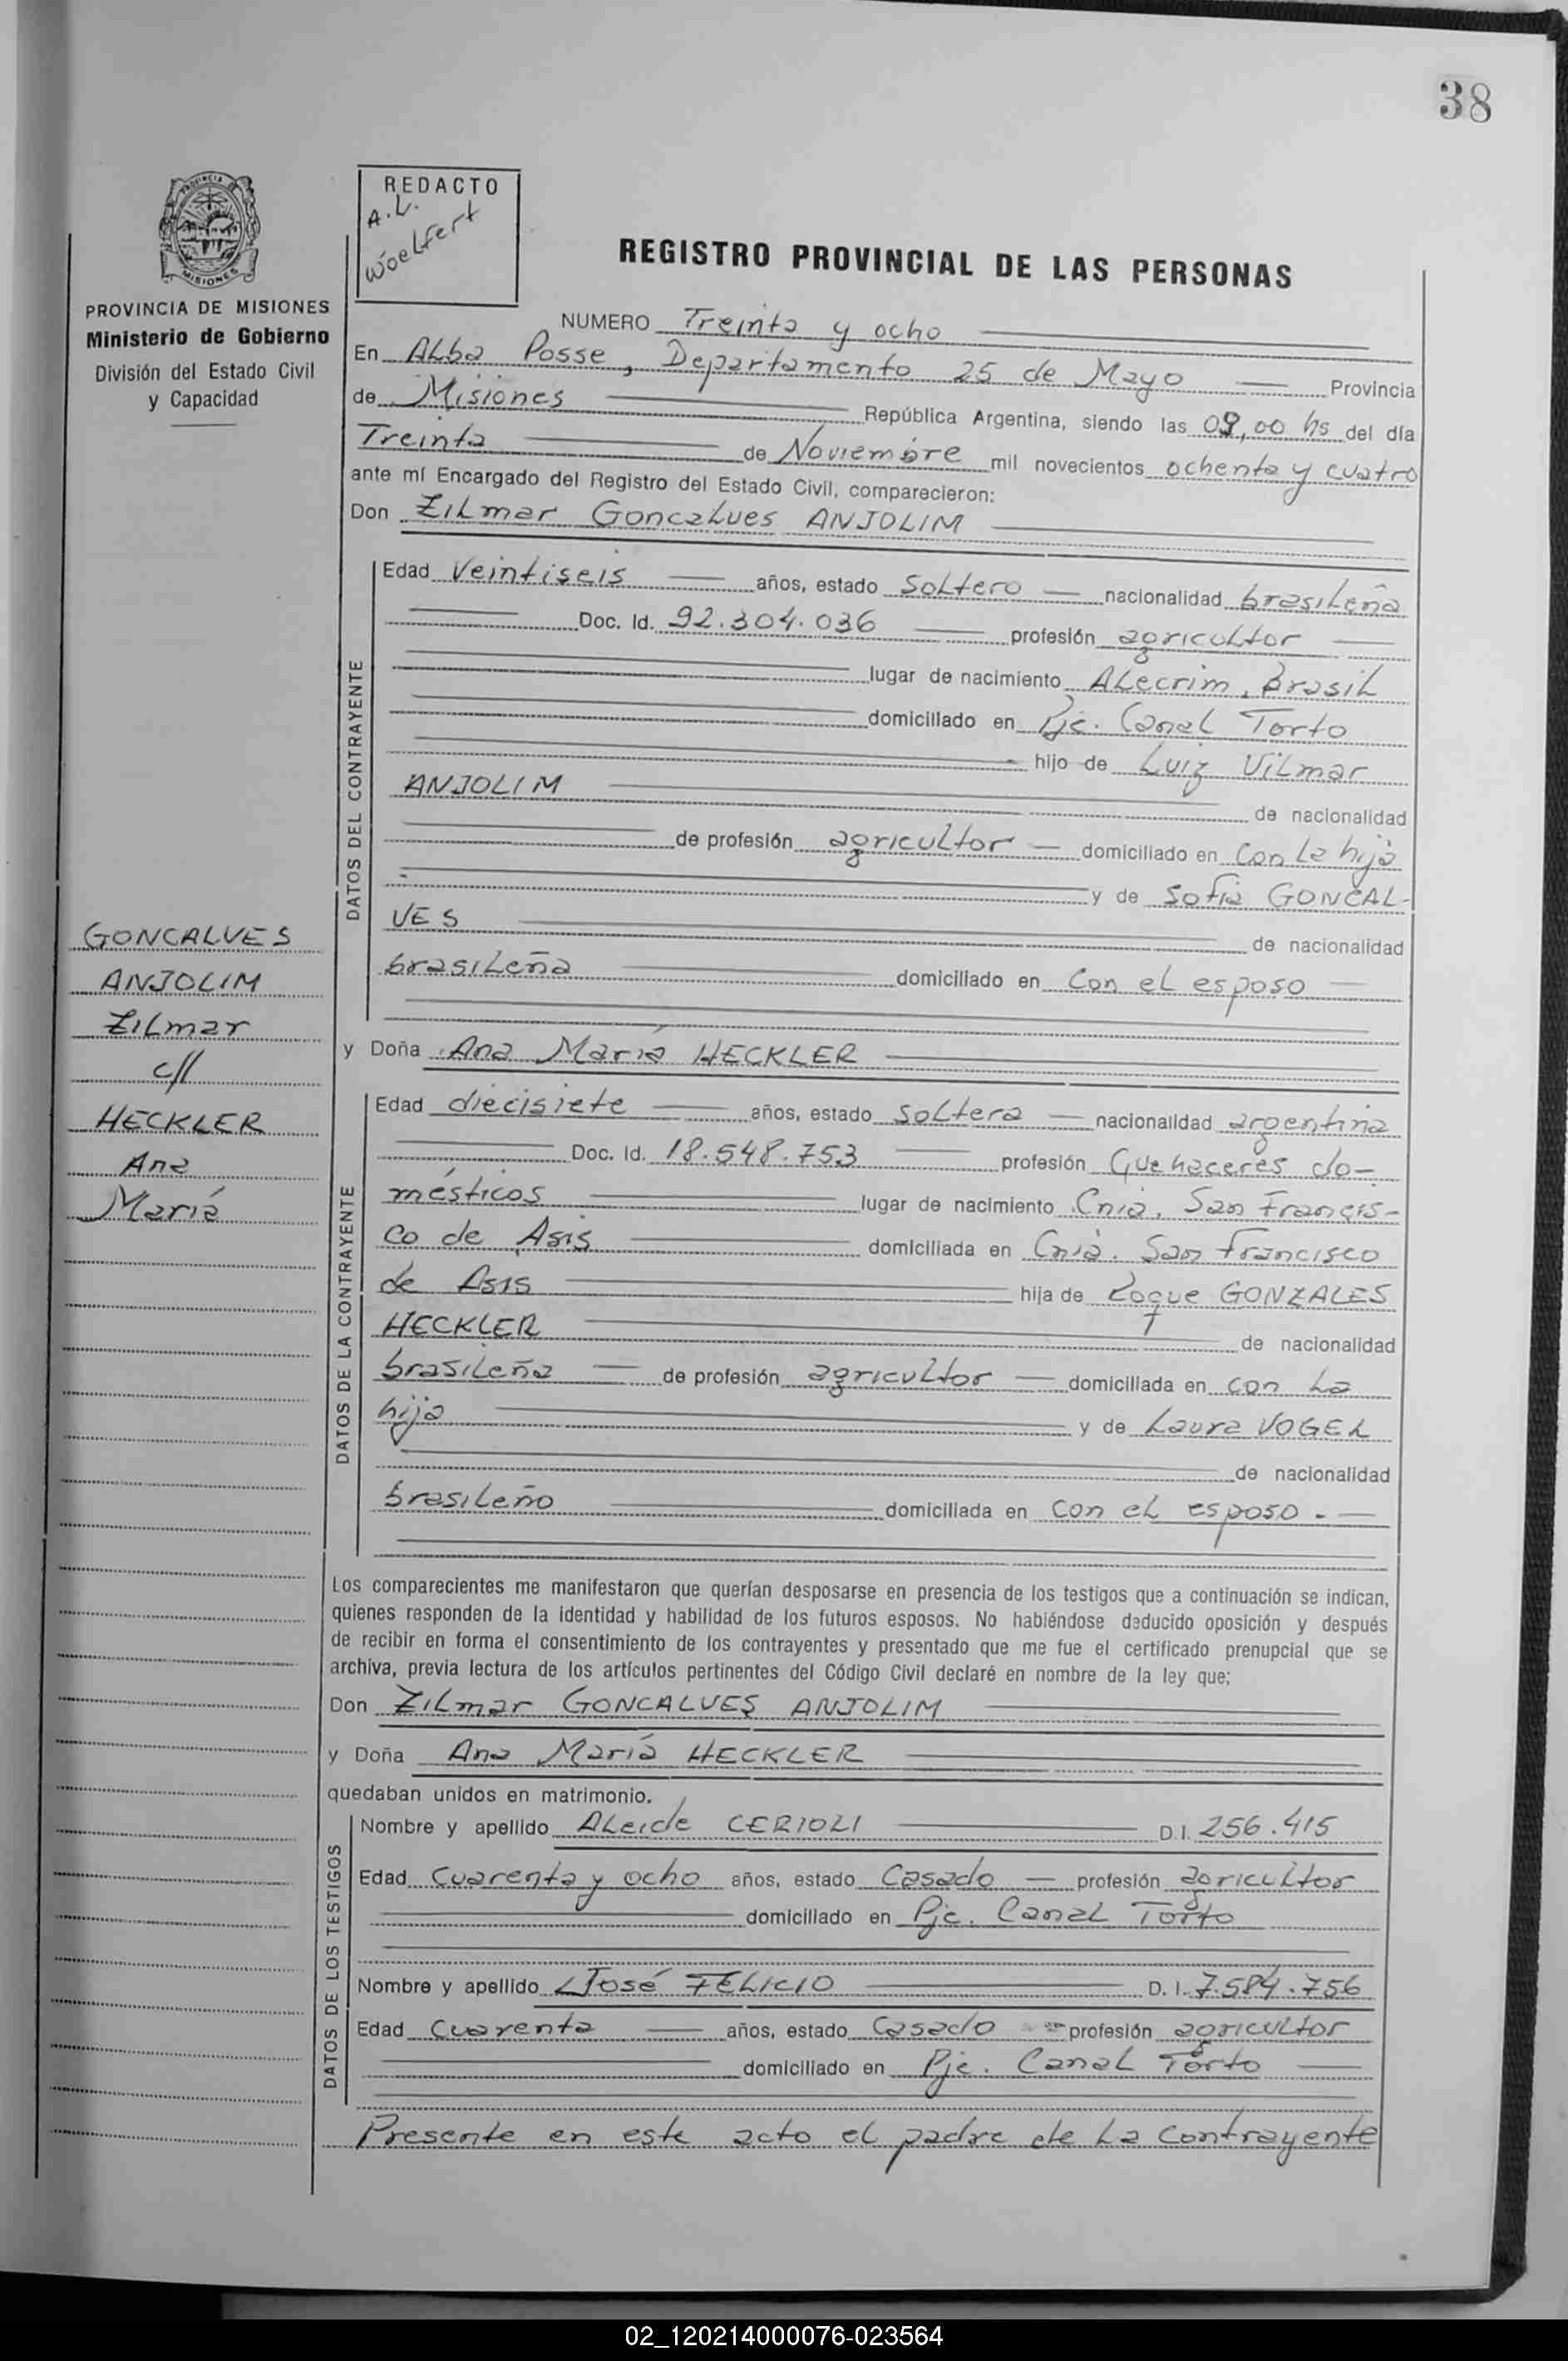 38
REDACTO
A.L.
Woelfert
PROVINCIA DE
MISIONES
PROVINCIA DE MISIONES
Ministerio de Gobierno
División del Estado Civil
y Capacidad
REGISTRO PROVINCIAL DE LAS PERSONAS
NUMERO Treinta y ocho
En Alba Posse, Departamento 25 de Mayo Provincia
de Misiones República Argentina, siendo las 09,00 hs del día
Treinta de Noviembre mil novecientos ochenta y cuatro
ante mí Encargado del Registro del Estado Civil, comparecieron:
Don Zilmar Goncalves ANJOLIM
DATOS DEL CONTRAYENTE
Edad Veintiseis años, estado Soltero nacionalidad brasileña
Doc. Id. 92.304.036 profesión agricultor
lugar de nacimiento Alecrim, Brasil
domiciliado en Pje. Canal Torto
hijo de Luiz Vilmar
ANJOLIM de nacionalidad
de profesión agricultor domiciliado en con la hija
y de Sofia GONCAL-
VES de nacionalidad
brasileña domiciliado en Con el esposo
GONCALVES
ANJOLIM
Zilmar
c//
HECKLER
Ana
María
y Doña Ana María HECKLER
DATOS DE LA CONTRAYENTE
Edad diecisiete años, estado soltera nacionalidad argentina
Doc. Id. 18.548.753 profesión Quehaceres do-
mésticos lugar de nacimiento Cnia. San Francis-
co de Asis domiciliada en Cnia. San Francisco
de Asis hija de Roque GONZALES
HECKLER de nacionalidad
brasileña de profesión agricultor domiciliada en con la
hija y de Laura VOGEL
de nacionalidad
brasileño domiciliada en con el esposo.-
Los comparecientes me manifestaron que querían desposarse en presencia de los testigos que a continuación se indican,
quienes responden de la identidad y habilidad de los futuros esposos. No habiéndose deducido oposición y después
de recibir en forma el consentimiento de los contrayentes y presentado que me fue el certificado prenupcial que se
archiva, previa lectura de los artículos pertinentes del Código Civil declaré en nombre de la ley que;
Don Zilmar GONCALVES ANJOLIM
y Doña Ana María HECKLER
quedaban unidos en matrimonio.
DATOS DE LOS TESTIGOS
Nombre y apellido Aleide CERIOLI D.I. 256.415
Edad Cuarenta y ocho años, estado Casado profesión agricultor
domiciliado en Pje. Canal Torto
Nombre y apellido José FELICIO D.I. 7.584.756
Edad Cuarenta años, estado Casado profesión agricultor
domiciliado en Pje. Canal Torto
Presente en este acto el padre de la contrayente
02_120214000076-023564